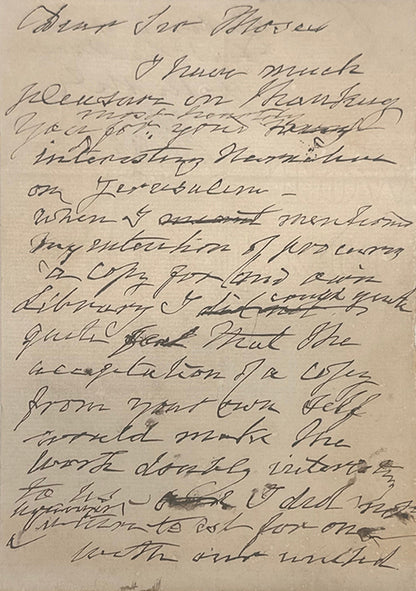 Dear Sir Moses
I have much
pleasure in thanking
most heartily
you for your
interesting Narrative
on Jerusalem –
when I meant mentioned
my intention of procuring
a copy for my own
Library I did not
quite feel that the
acceptation of a copy
from your own self
would make the
work doubly interesting
to us I did not
for one
with our united